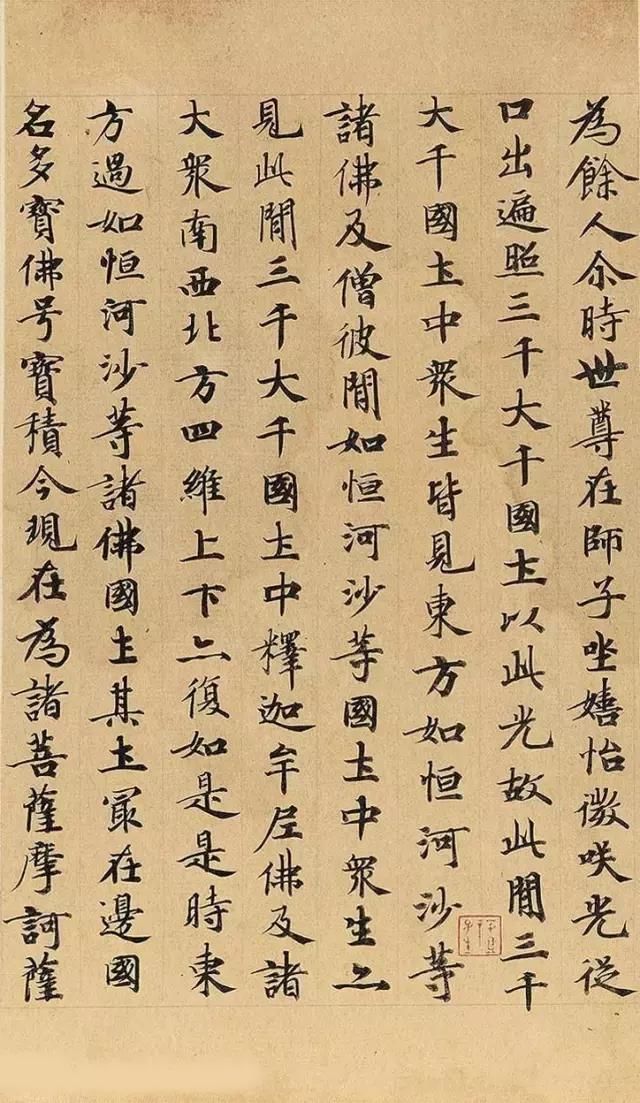 為餘人尒時世尊在師子坐嬉怡微咲光從
口出遍照三千大千國土以此光故此閒三千
大千國土中衆生皆見東方如恒河沙等
諸佛及僧彼閒如恒河沙等國土中衆生亦
見此閒三千大千國土中釋迦牟尼佛及諸
大衆南西北方四維上下亦復如是是時東
方過如恒河沙等諸佛國土其土冣在邊國
名多寶佛号寶積今現在為諸菩薩摩訶薩